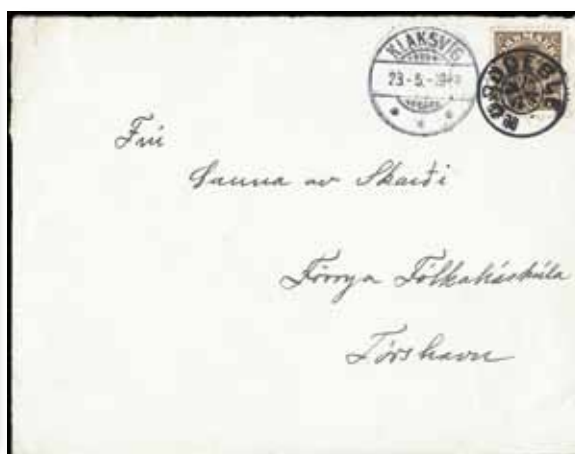 KLAKSVIG
23-5.-19
NORDDEBLE
Frú
Sanna av Skarði
Føroya Fólkaháskúla
Tórshavn